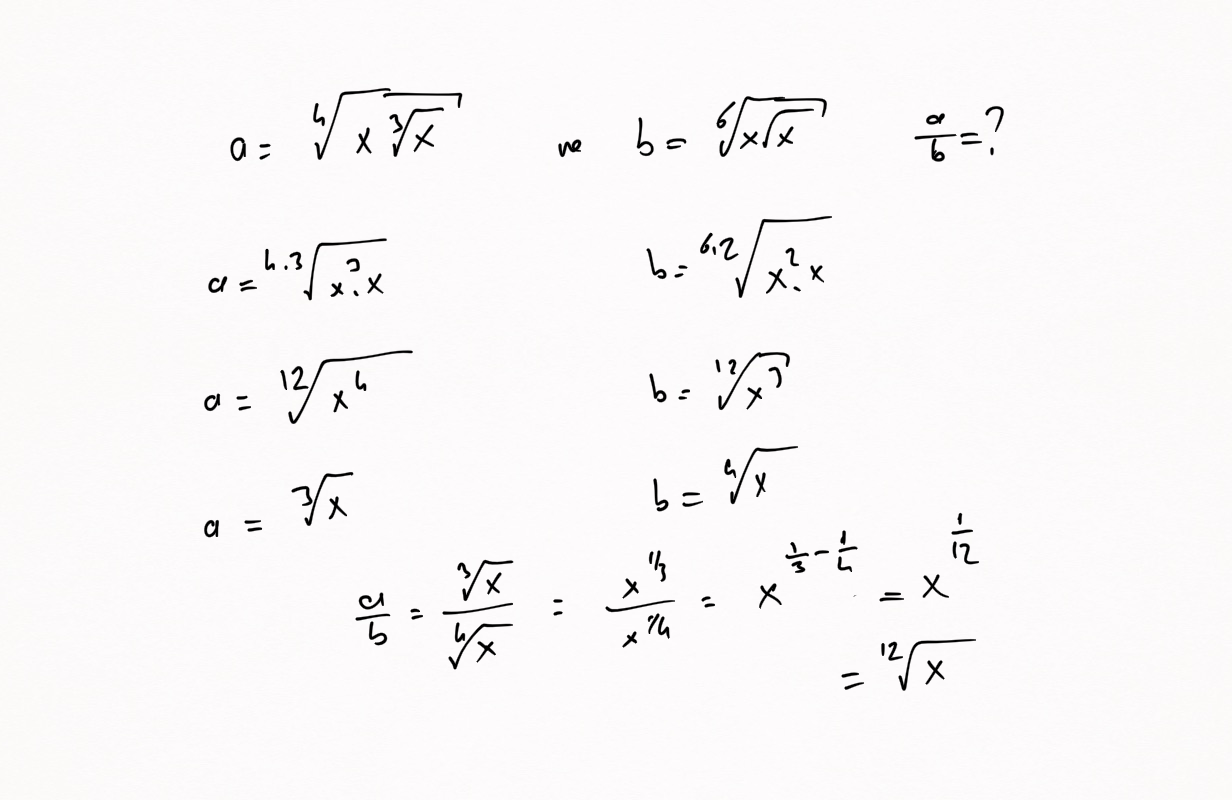 a = ⁴√(x ³√x) ve b = ⁶√(x√x) a/b = ?
a = ⁴·³√(x³·x) b = ⁶·²√(x²·x)
a = ¹²√(x⁴) b = ¹²√(x³)
a = ³√x b = ⁴√x
a/b = ³√x / ⁴√x = x^(1/3) / x^(1/4) = x^(1/3 - 1/4) = x^(1/12)
= ¹²√x